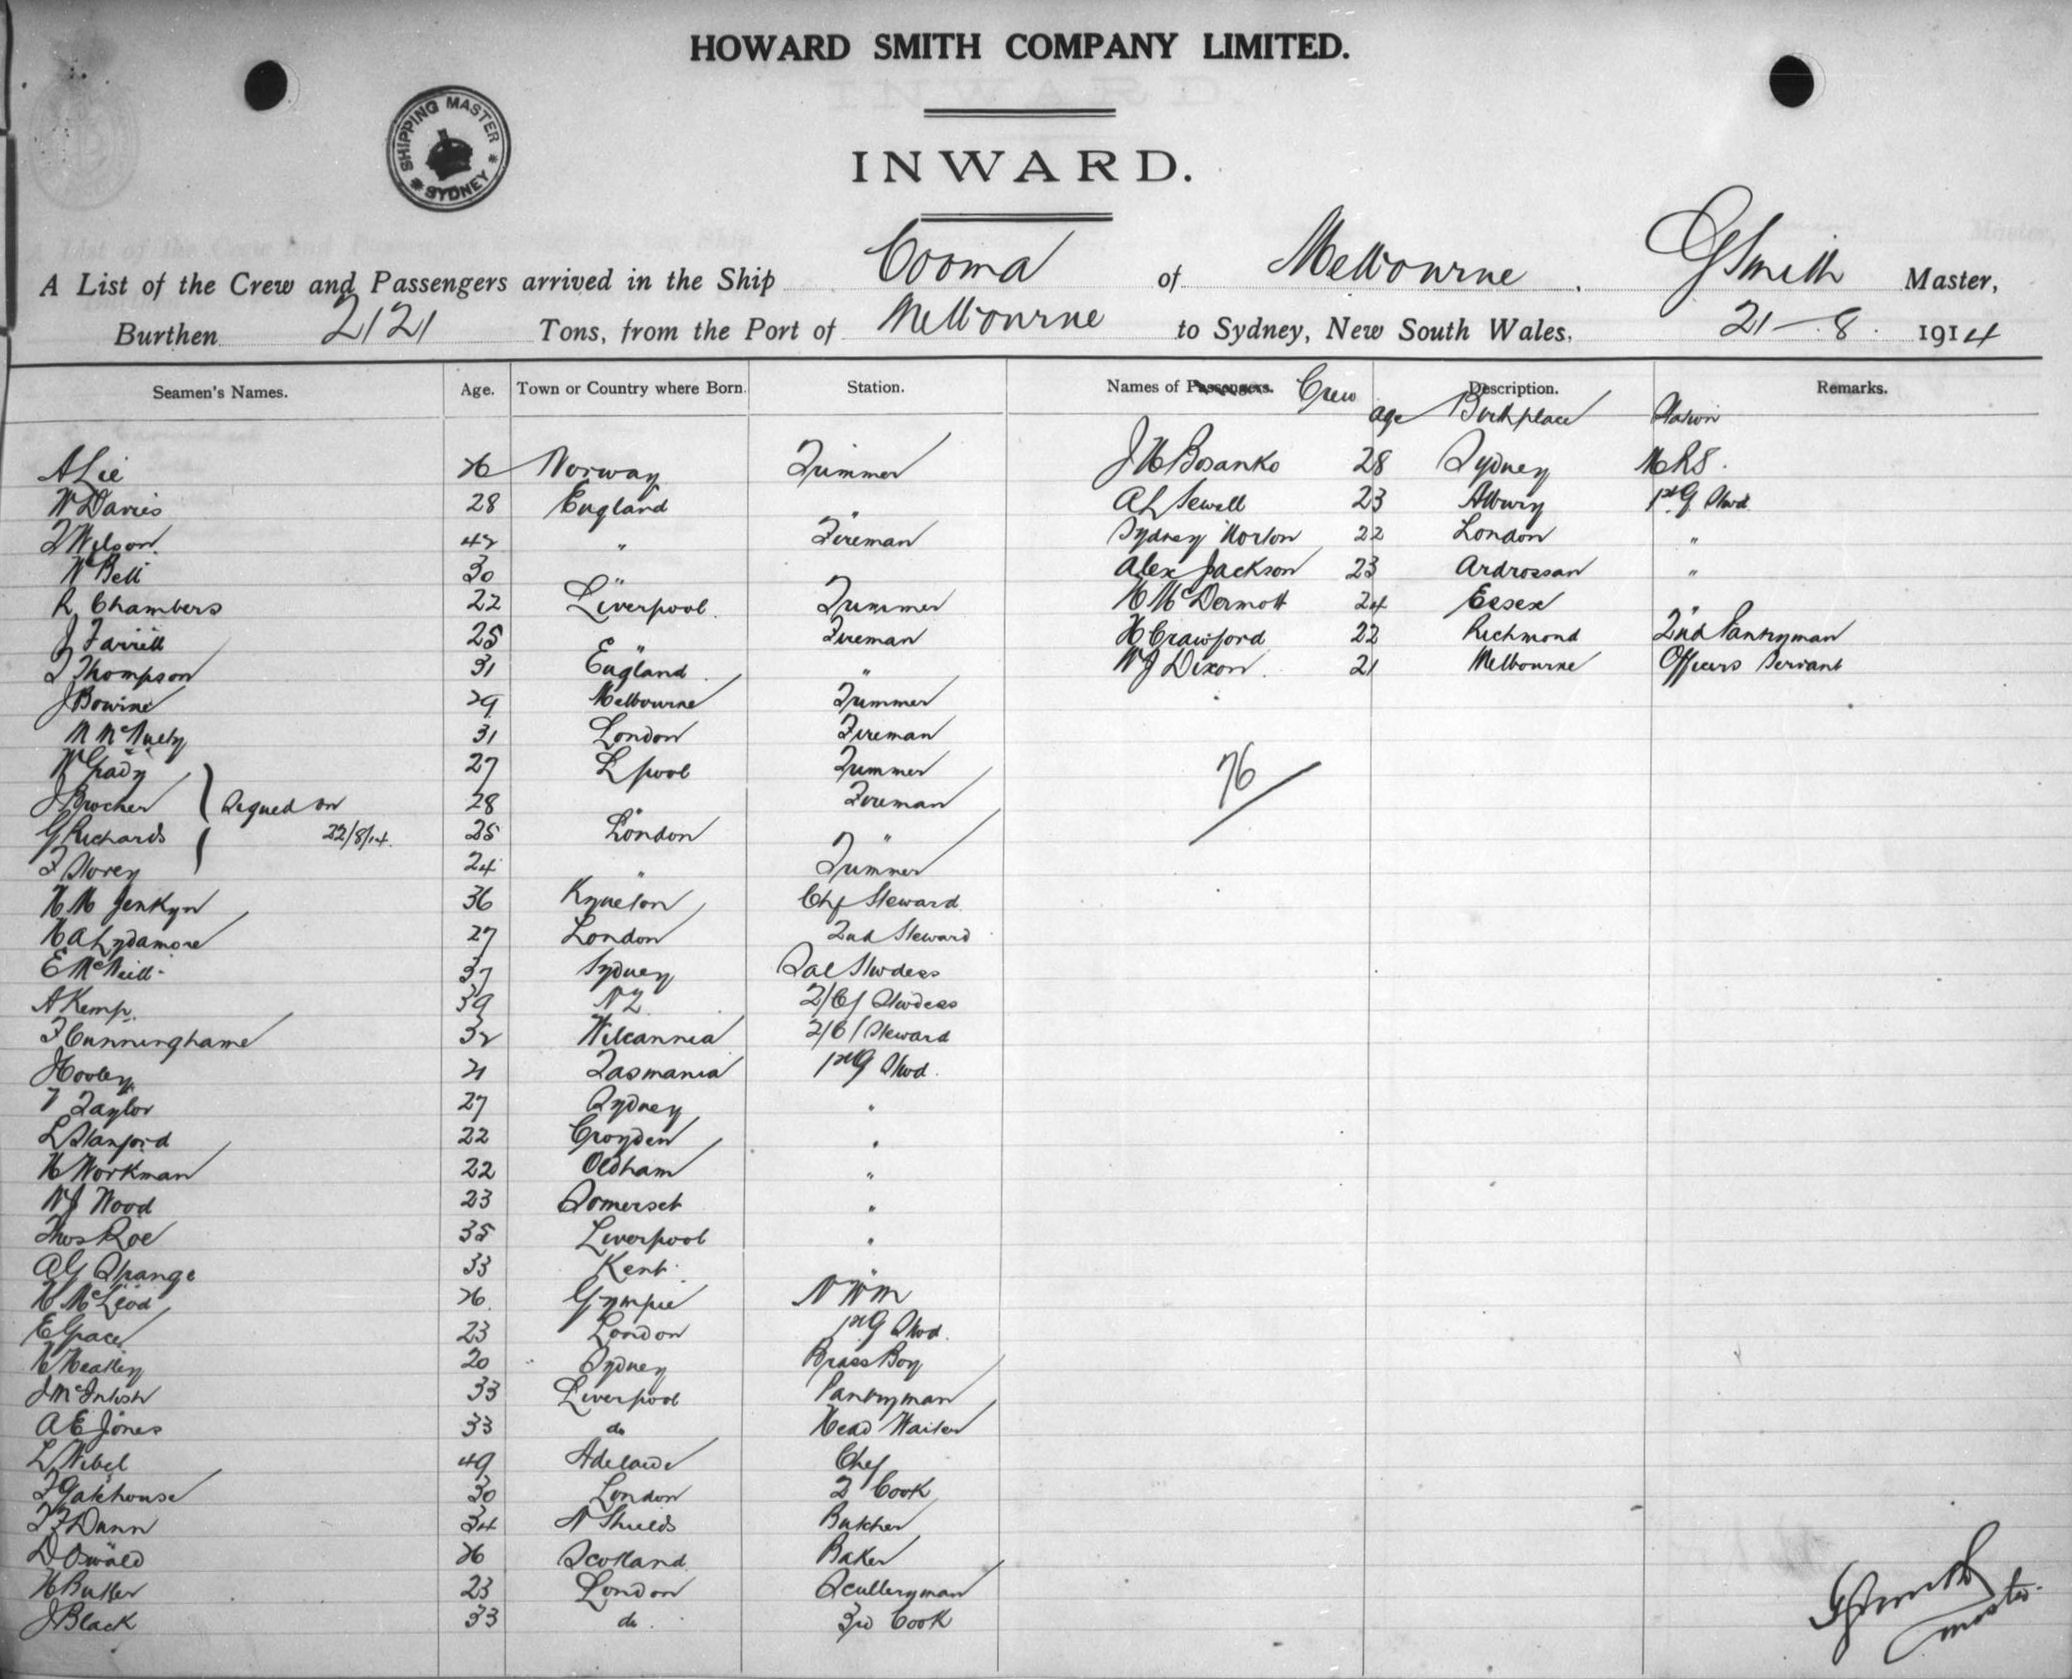 HOWARD SMITH COMPANY LIMITED.
SHIPPING MASTER SYDNEY
INWARD.
A List of the Crew and Passengers arrived in the Ship Cooma of Melbourne, G Smith Master,
Burthen 2121 Tons, from the Port of Melbourne to Sydney, New South Wales, 21-8- 1914
Seamen's Names. Age. Town or Country where Born. Station. Names of Passengers. Crew Description. Remarks.
age Birthplace Station
A Lie 26 Norway Trimmer J H Bosanko 28 Sydney M R S.
W Davies 28 England " A L Sewell 23 Albury 1st G Stwd
T Wilson 42 " Fireman Sydney Norton 22 London "
W Bell 30 " " Alex Jackson 23 Ardrossan "
R Chambers 22 Liverpool Trimmer H McDermott 24 Essex "
J Farrell 25 " Fireman H Crawford 22 Richmond 2nd Pantryman
T Thompson 31 England " W J Dixon 21 Melbourne Officers Servant
J Bowine 29 Melbourne Trimmer
31 London Fireman
W Grady 27 L'pool Trimmer
J Brocher Signed on 28 " Fireman
G Richards 22/8/14. 25 London "
F Storey 24 " Trimmer
H M Jenkyn 36 Kyneton Chf Steward
H A Lydamore 27 London 2nd Steward
E McNeill 37 Sydney Sal Stwdess
A Kemp 39 NZ 2/Cl Stwdess
F Cunninghame 32 Wilcannia 2/Cl Steward
J Hooley 21 Tasmania 1st G Stwd.
T Taylor 27 Sydney "
L Stanford 22 Croyden "
H Workman 22 Oldham "
W J Wood 23 Somerset "
Thos Roe 35 Liverpool "
A G Strange 33 Kent "
H McLeod 26 Gympie N W M
E Grace 23 London 1st G Stwd.
H Heatley 20 Sydney Brass Boy
J McIntosh 33 Liverpool Pantryman
A E Jones 33 do Head Waiter
L Wibel 49 Adelaide Chef
F Gatehouse 30 London 2 Cook
T F Dunn 34 N Shields Butcher
D Oswald 26 Scotland Baker
H Butler 23 London Sculleryman
J Black 33 do. 3rd Cook
76
G Smith
master